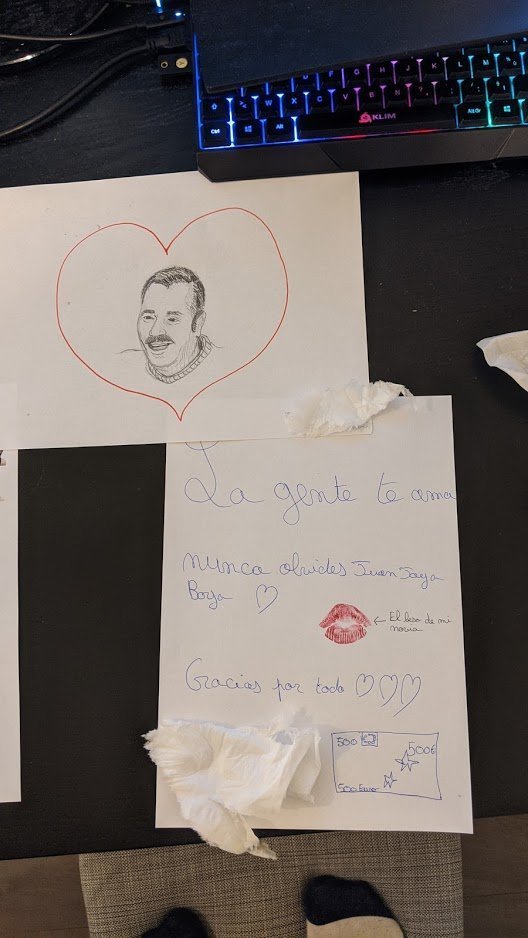 KLIM
Ctrl
Alt
Alt Gr
W X C V B N
La gente te ama
nunca olvides Juan Joya
Borja ♡
← El beso de mi
novia
Gracias por todo ♡♡♡
500
500€
500 Euro